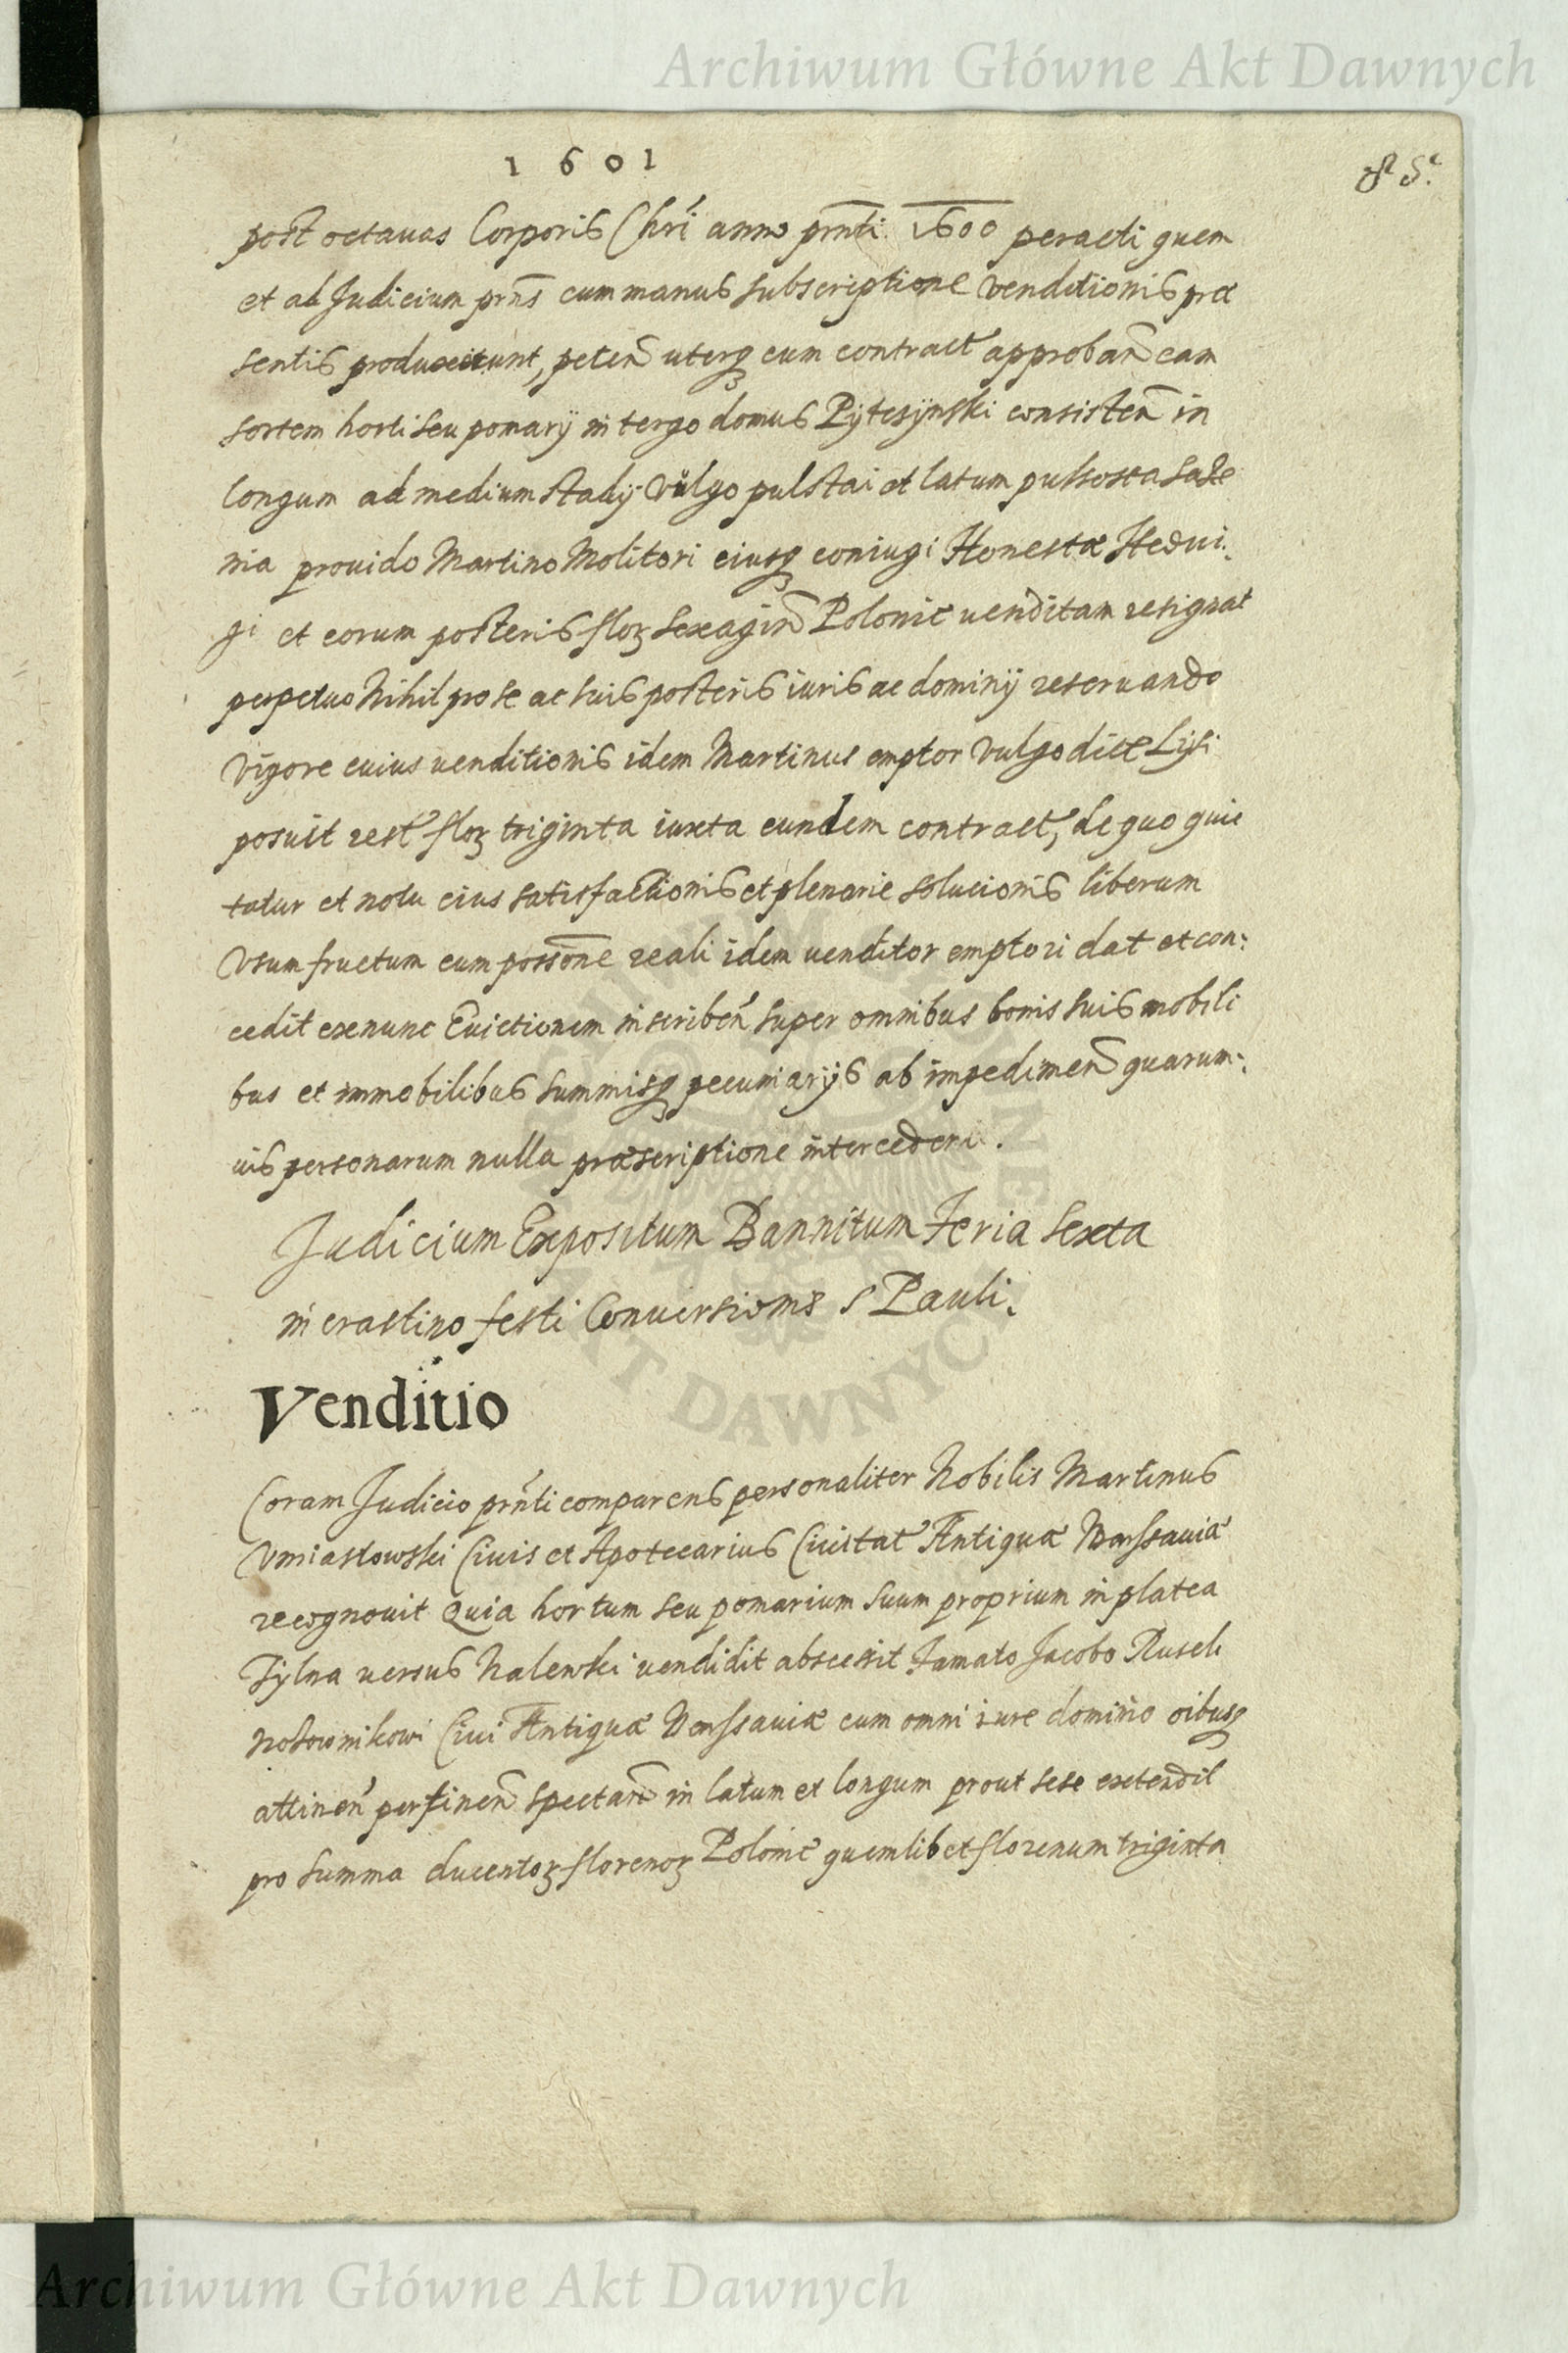 Archiwum Główne Akt Dawnych
1601
85
post octavas Corporis Chri anno prnti 1600 peracti quem
et ad Judicium prns cum manus subscriptione venditionis præ
sentis produxerunt, peten uterq cum contract approban eam
sortem horti seu pomarij in tergo domus Pytesynski consisten in
longum ad medium stadij vulgo pulstai et latum pultosta saze
nia provido Martino Molitori eiusq coniugi Honestæ Hedui,
gi et eorum posteris floz sexagin Polonic venditam resignat
perpetuo Nihil pro se ac suis posteris iuris ac dominij reseruando
Vigore cuius venditionis idem Martinus emptor vulgo dict Lysi
posuit rest floz triginta iuxta eundem contract, de quo quie
tatur et notu eius satisfactionis et plenarie solucionis liberum
Vsumfructum cum possone reali idem venditor emptori dat et con:
cedit exnunc Euictionem inscriben super omnibus bonis suis mobili
bus et immobilibus summisq pecuniarijs ab impedimen quarum:
uis personarum nulla præscriptione interceden .
Judicium Expositum Bannitum Feria Sexta
in crastino festi Conuersionis S Pauli.
Venditio
Coram Judicio prnti comparens personaliter Nobilis Martinus
Vmiastowski Ciuis et Apotecarius Ciuitat Antiquæ Warssauiæ
recognouit Quia hortum seu pomarium suum proprium in platea
Tylna versus Nalewki vendidit abscessit Famato Jacobo Rusek
nozownikowi Ciui Antiquæ Warssauiæ cum omni iure dominio oibusq
attinen pertinen spectan in latum et longum prout sese extendit
pro summa ducentoz florenoz Polonic quemlibet florenum triginta
Archiwum Główne Akt Dawnych